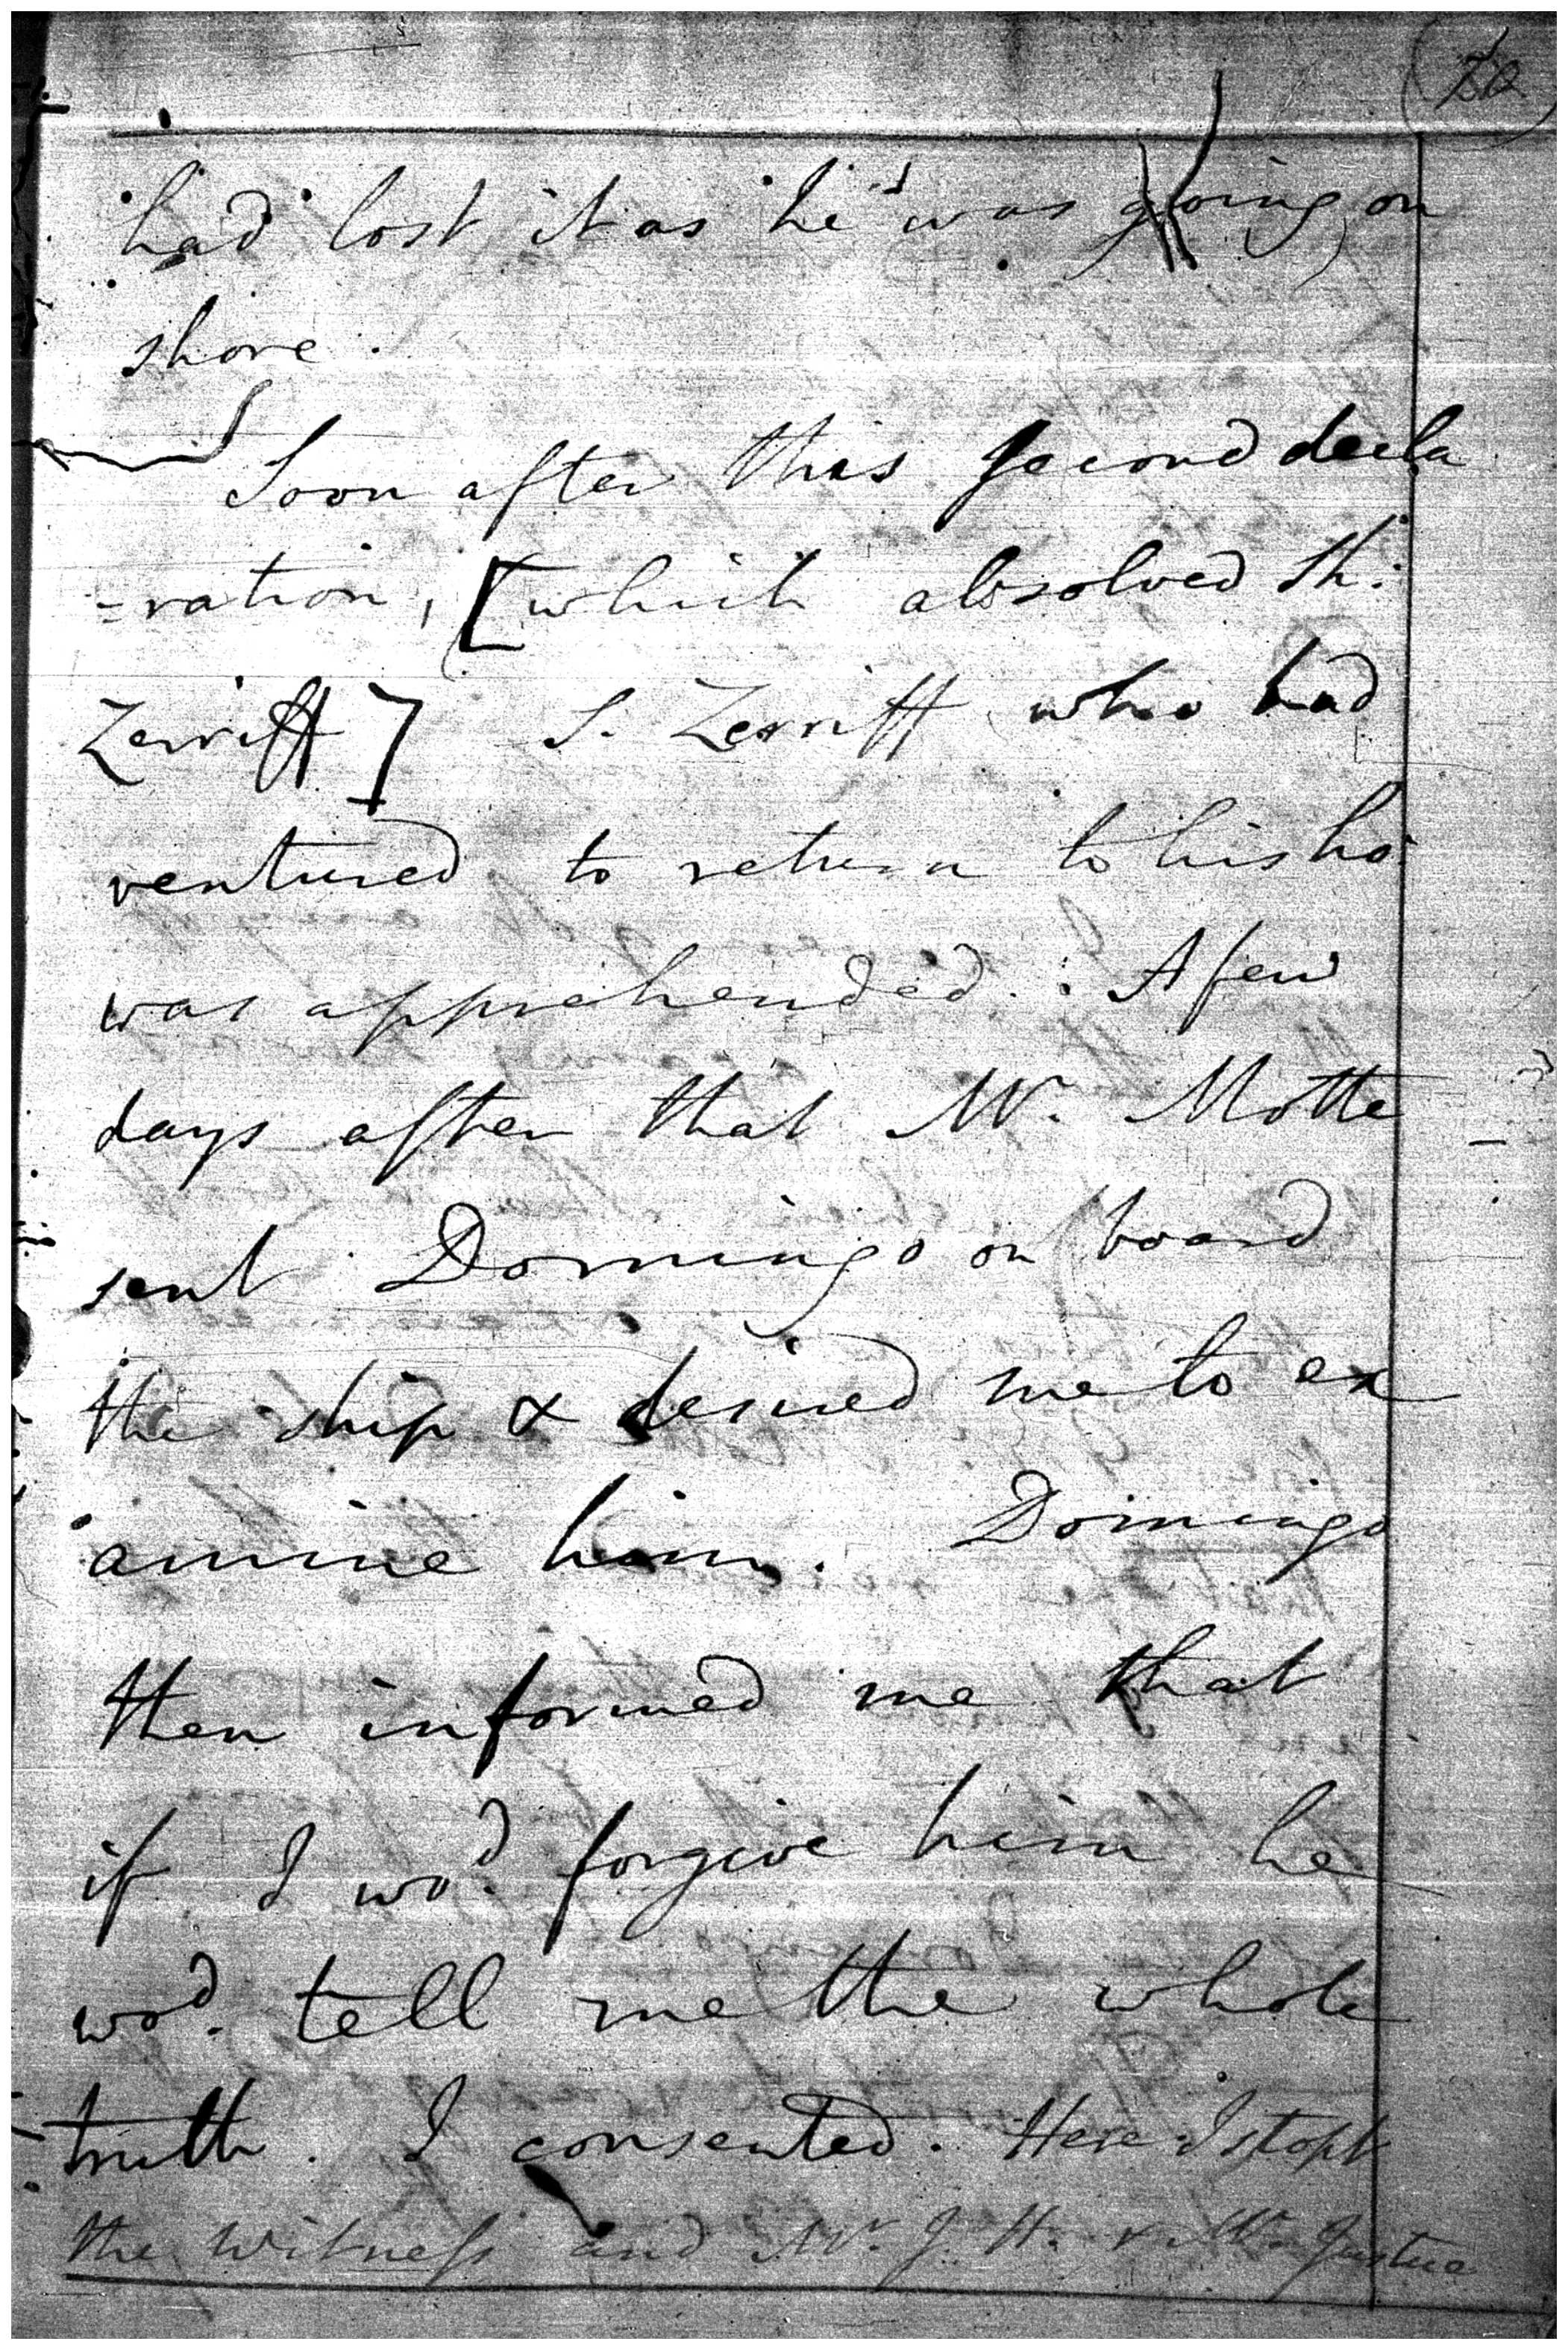 had lost it as he was going on
shore.
Soon after this second decla
-ration, [which absolved Sh:
Zerriff] S. Zerriff who had
ventured to return to his ho:
was apprehended. : A few
days after that Mr. Motte
sent Domingo on board
the ship & desired me to ex
amine him. Domingo
then informed me that
if I wod. forgive him he
wod. tell me the whole
truth. I consented. Here I stopt
the witness and Mr. J. H. & Mr. Justice